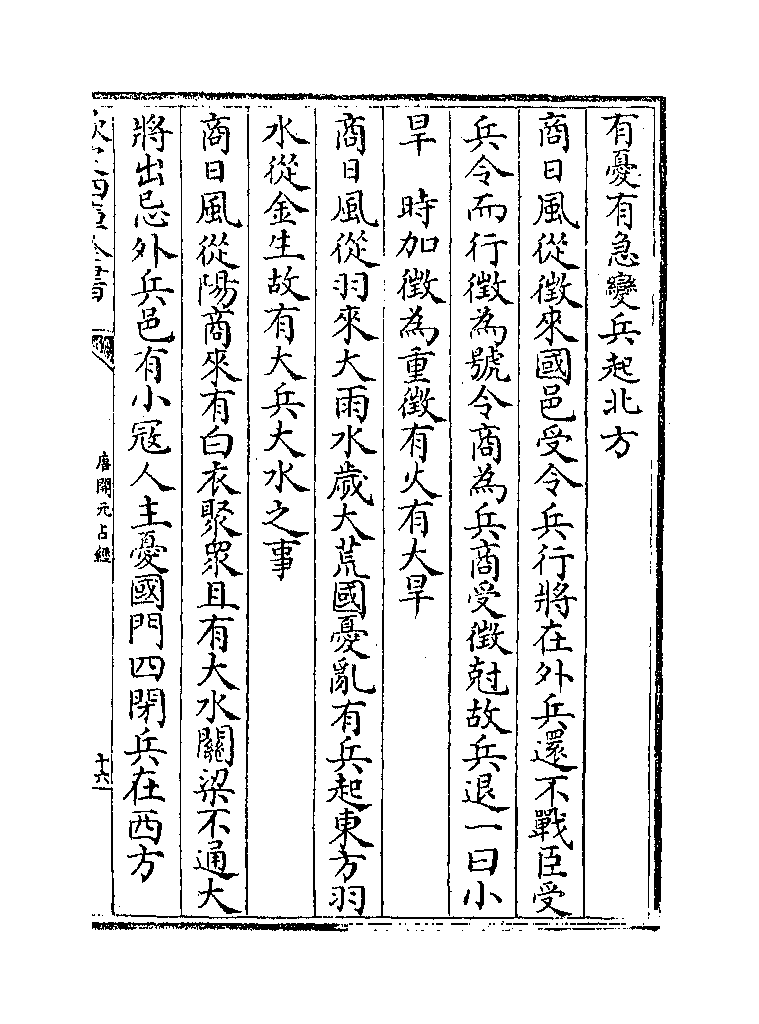 有憂有急變兵起北方
商日風從徵來國邑受令兵行將在外兵還不戰臣受
兵令而行徵為號令商為兵商受徵尅故兵退一曰小
旱　時加徵為重徵有火有大旱
商日風從羽來大雨水歲大荒國憂亂有兵起東方羽
水從金生故有大兵大水之事
商日風從陽商來有白衣聚衆且有大水關梁不通大
將出忌外兵邑有小冦人主憂國門四閉兵在西方
欽定四庫全書
唐開元占經
十六